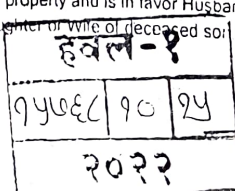 property and is in favor Husban
ghter or Wife of deceased son
हवल-१
१५७६८ १० २५
२०२२